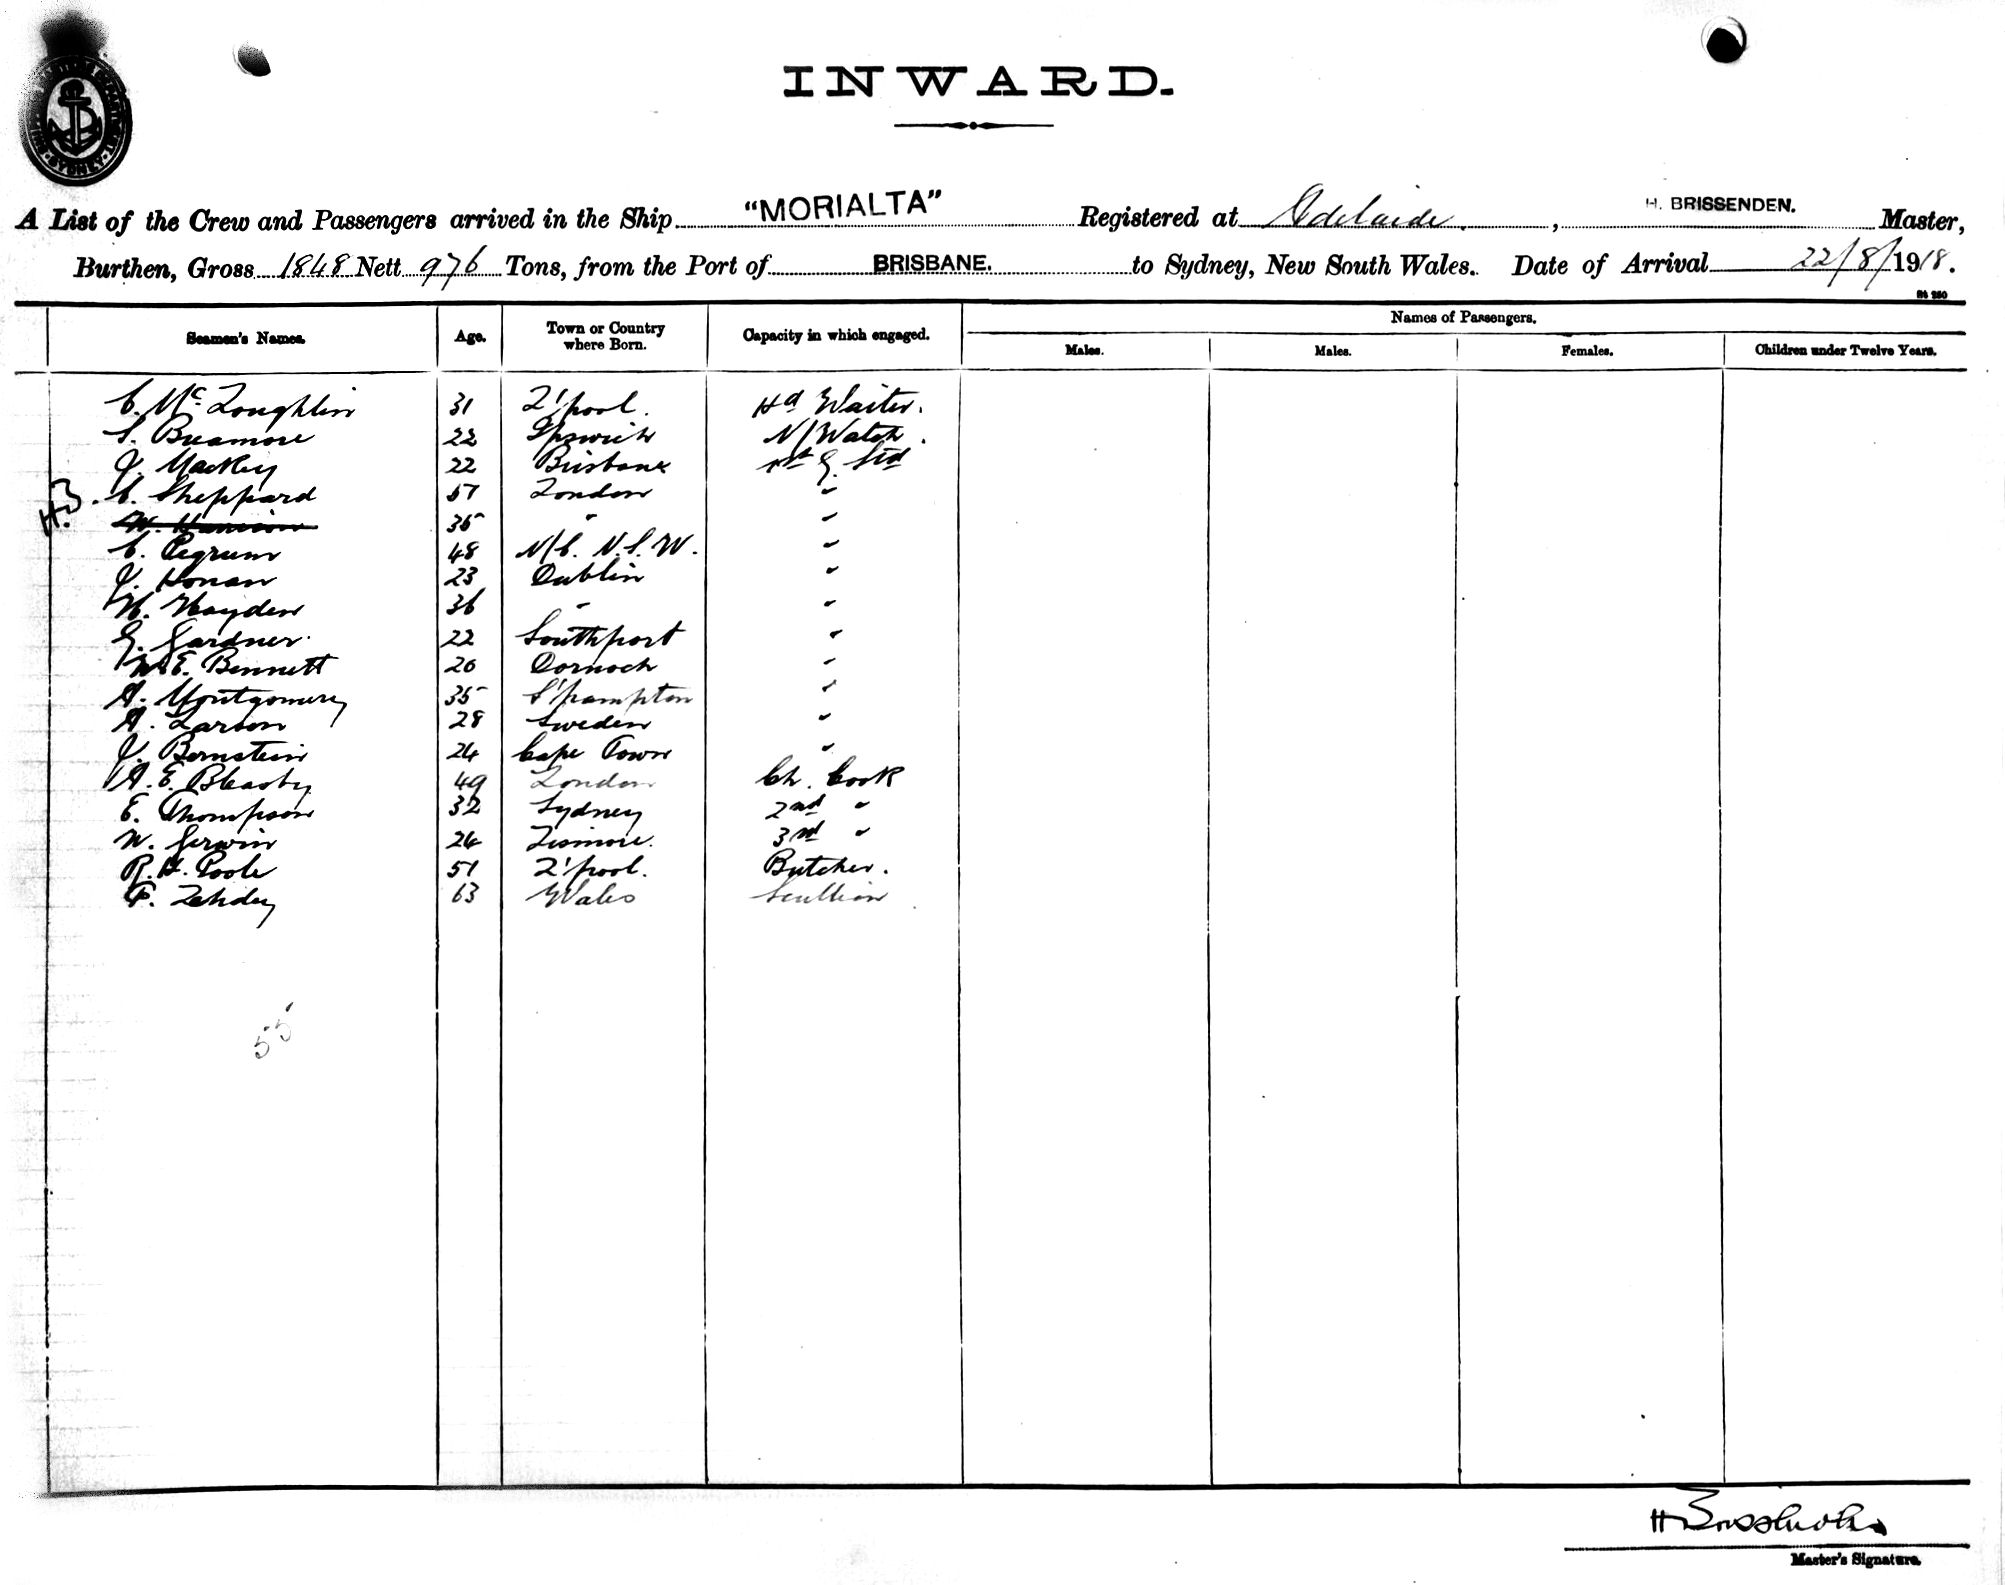 INWARD.
SYDNEY
A List of the Crew and Passengers arrived in the Ship "MORIALTA" Registered at Adelaide, H. BRISSENDEN. Master,
Burthen, Gross 1848 Nett 976 Tons, from the Port of BRISBANE. to Sydney, New South Wales. Date of Arrival 22/8/1918.
Seamen's Names. Age. Town or Country where Born. Capacity in which engaged. Names of Passengers.
Males. Males. Females. Children under Twelve Years.
C. McLoughlin 31 L'pool. Hd Waiter.
S. Breamore 22 Ipswich N/Watch.
J. Mackey 22 Brisbane 1st G. Std
H.B. C. Sheppard 57 London "
W. Harrison 35 " "
C. Pegrum 48 N/C. N.S.W. "
J. Honan 23 Dublin "
H. Hayden 36 " "
G. Gardner 22 Southport "
W.E. Bennett 20 Dornoch "
A. Montgomery 35 S'hampton "
A. Larson 28 Sweden "
J. Bernstein 24 Cape Town "
A.E. Bleasby 49 London Ch. Cook
E. Thompson 32 Sydney 2nd "
W. Gerwin 24 Lismore. 3rd "
R.H. Poole 51 L'pool. Butcher.
F. Lehdey 63 Wales Scullion
55
H Brissenden
Master's Signature.